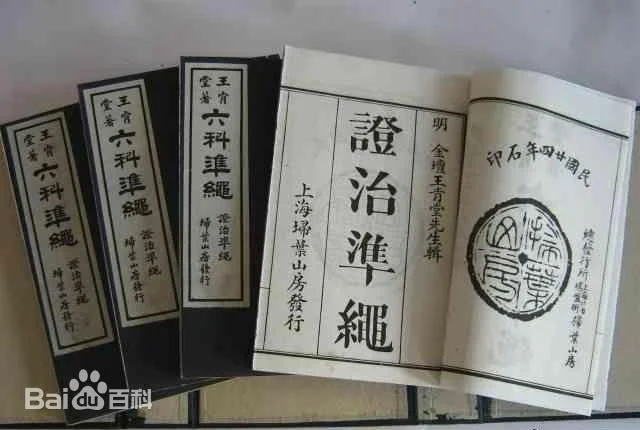 王肯
堂著
六科準繩
證治準繩
埽葉山房發行
王肯
堂著
六科準繩
證治準繩
埽葉山房發行
王肯
堂著
六科準繩
證治準繩
埽葉山房發行
明 金壇王肯堂先生輯
證治準繩
上海埽葉山房發行
民國廿四年石印
埽葉山房
總發行所
埽葉山房
Bai百科